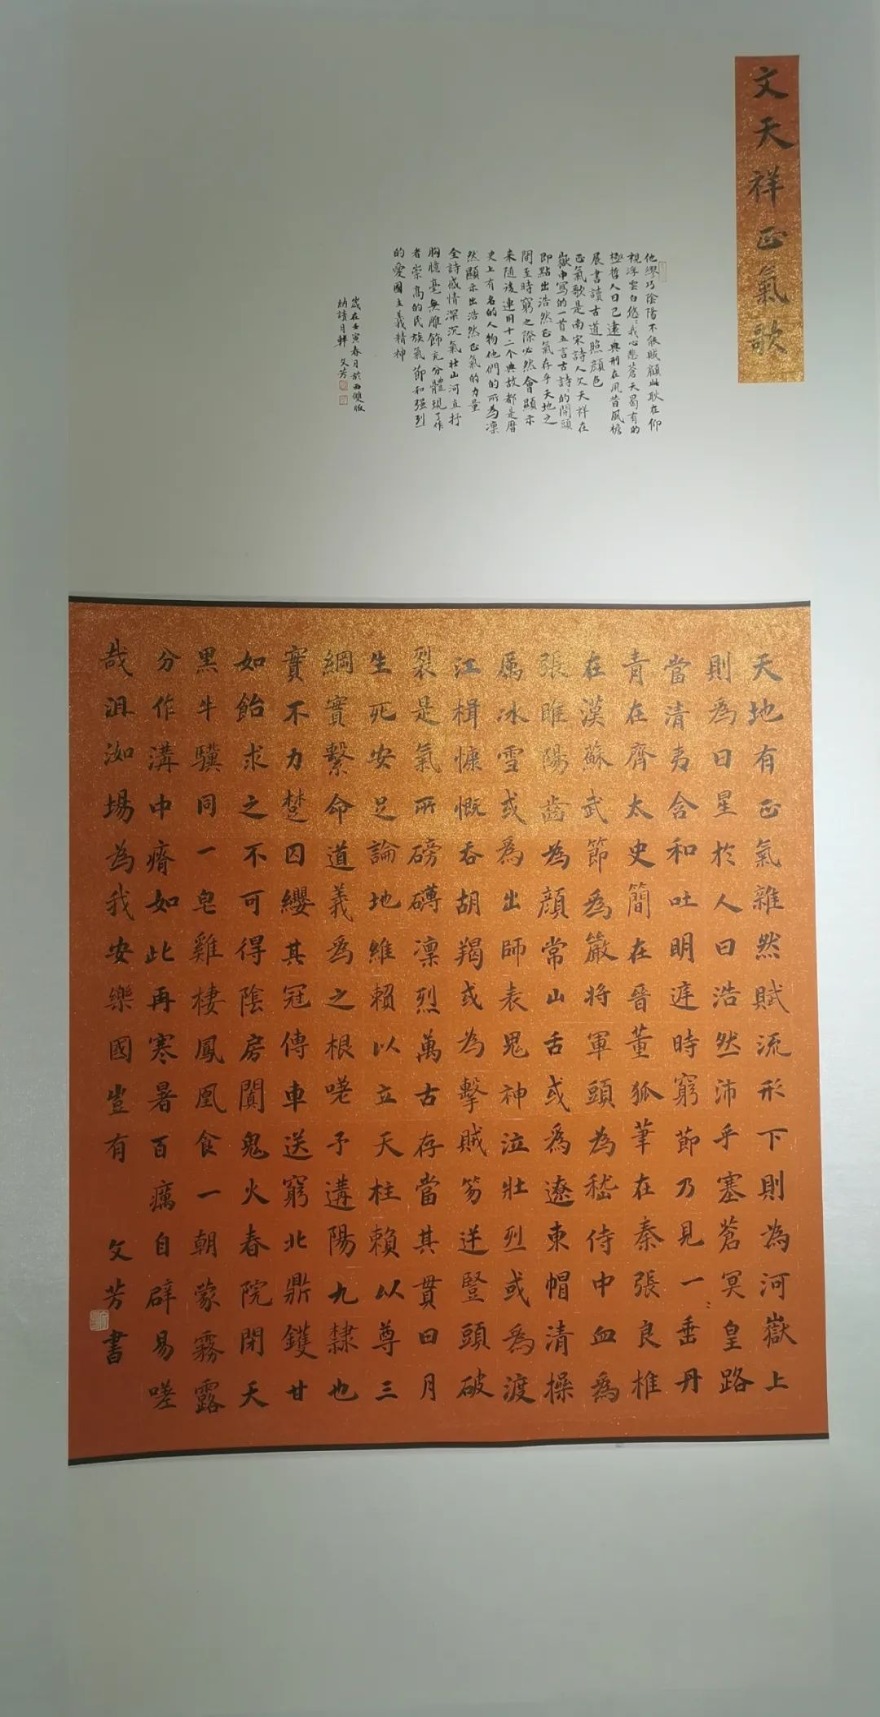 文天祥正氣歌
他繆巧陰陽不能賊顧此耿在仰
視浮雲白悠悠我心悲蒼天曷有的
極哲人日已遠典刑在夙昔風檐
展書讀古道照顏色
正氣歌是南宋詩人文天祥在
獄中寫的一首五言古詩詩的開頭
即點出浩然正氣存乎天地之
間至時窮之際必然會顯示
來隨後連用十二个典故都是歷
史上有名的人物他們的所為凜
然顯示出浩然正氣的力量
全詩感情深沉氣壯山河直抒
胸臆毫無雕飾充分體現了作
者崇高的民族氣節和强烈
的愛國主義精神
歲在壬寅春月於西雙版
納讀月軒 文芳
天地有正氣雜然賦流形下則為河嶽上
則為日星於人曰浩然沛乎塞蒼冥皇路
當清夷含和吐明庭時窮節乃見一垂丹
青在齊太史簡在晉董狐筆在秦張良椎
在漢蘇武節為嚴將軍頭為嵇侍中血為
張睢陽齒為顏常山舌或為遼東帽清操
厲冰雪或為出師表鬼神泣壯烈或為渡
江楫慷慨吞胡羯或為擊賊笏逆豎頭破
裂是氣所磅礴凜烈萬古存當其貫日月
生死安足論地維賴以立天柱賴以尊三
綱實繫命道義為之根嗟予遘陽九隸也
實不力楚囚纓其冠傳車送窮北鼎鑊甘
如飴求之不可得陰房闃鬼火春院閉天
黑牛驥同一皂雞棲鳳凰食一朝蒙霧露
分作溝中瘠如此再寒暑百癘自辟易嗟
哉沮洳場為我安樂國豈有 文芳書